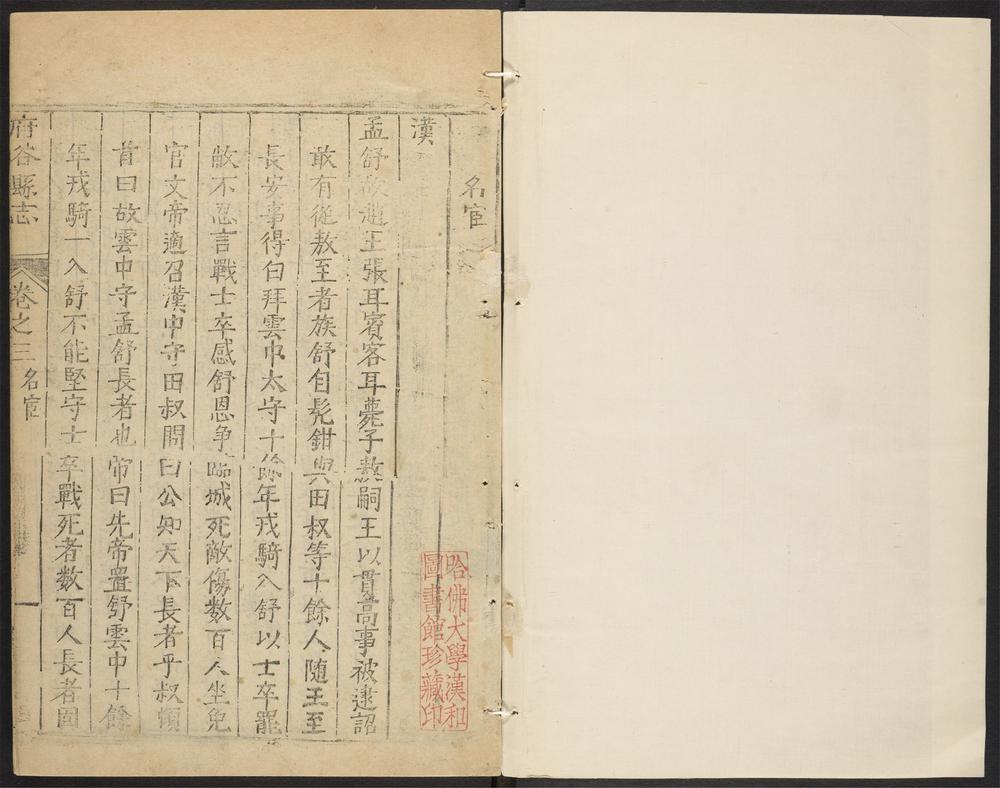 名宦
漢
孟舒故趙王張耳賓客耳薨子敖嗣王以貫高事被逮詔
敢有從敖至者族舒自髠鉗與田叔等十餘人随王至
長安事得白拜雲中太守十餘年戎騎入舒以士卒罷
敝不忍言戰士卒感舒恩争臨城死敵傷数百人坐免
官文帝適召漢中守田叔問曰公知天下長者乎叔頓
首曰故雲中守孟舒長者也帝曰先帝置舒雲中十餘
年戎騎一入舒不能堅守士卒戰死者数百人長者固
府谷縣志
卷之三
名宦
一
哈佛大學漢和
圖書館珍藏印